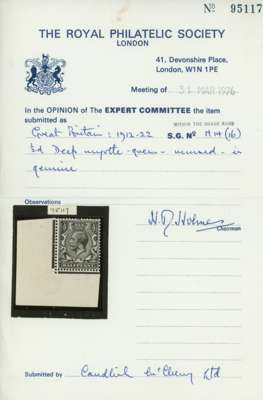 Nº 95117
THE ROYAL PHILATELIC SOCIETY
LONDON
41, Devonshire Place,
London, W1N 1PE
Meeting of 31 MAR 1976
In the OPINION of The EXPERT COMMITTEE the item
submitted as
Great Britain: 1912-22 S.G. Nº
5d Deep myrtle-green - unused - is
genuine
Observations
95117
Chairman
Submitted by Ltd